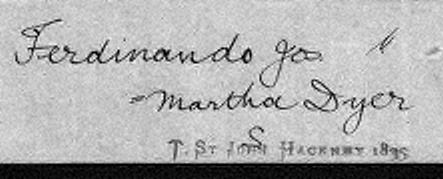 Ferdinando Jos "
= Martha Dyer
S
T. St John Hackney 1895